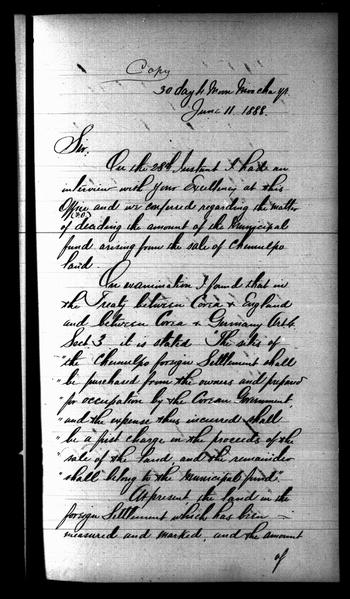 Copy
30 day 4 Moon Moo cha yr.
June 11. 1888.
Sir.
On the 28th Instant I had an
interview with your Excellency at this
Office and we confered regarding the matter
of deciding the amount of the Municipal
fund arising from the sale of Chemulpo
land
On examination I found that in
the Treaty between Corea & England
and between Corea & Germany Art 4.
Sect 3 it is stated "The sites of
"the Chemulpo foreign Settlement shall
"be purchased from the owners and prepared
"for occupation by the Corean Government,
"and the expense thus incurred shall
"be a first charge in the proceeds of the
"sale of the land and the remainder
"shall belong to the Municipal fund".
At present the land in the
foreign Settlement which has been
measured and marked, and the amount
of